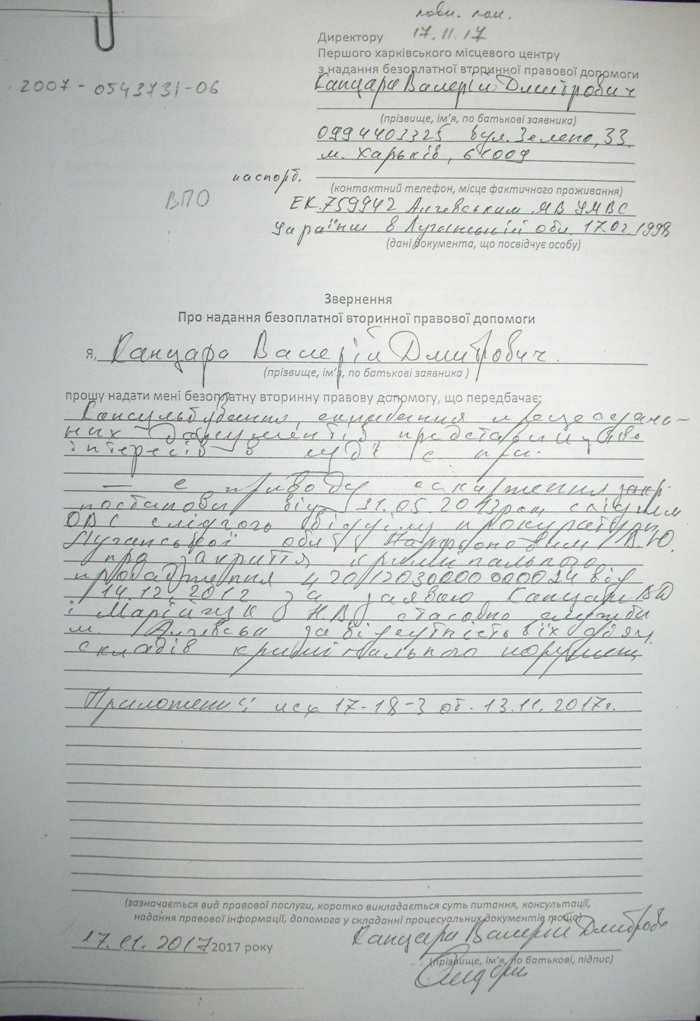 17.11.17
Директору
Першого харківського місцевого центру
з надання безоплатної вторинної правової допомоги
2007-0543731-06
Канцара Валерій Дмитрович
(прізвище, ім'я, по батькові заявника)
0994403325 вул. Зелена, 33
м. Харьків, 61009
паспорт.
(контактний телефон, місце фактичного проживання)
ВПО
ЕК.759942 Алчевським МВ УМВС
України в Луганській обл. 17.02.1998
(дані документа, що посвідчує особу)
Звернення
Про надання безоплатної вторинної правової допомоги
я, Канцара Валерій Дмитрович.
(прізвище, ім'я, по батькові заявника)
прошу надати мені безоплатну вторинну правову допомогу, що передбачає:
Консультування, складання процесуаль-
них документів, представництво
інтересів в суді
– з приводу оскарження
постанови від 31.05.2013 слідчим
ОВС слідчого відділу прокуратури
Луганської обл. В.Ю.
про закриття кримінального
провадження 42012030000000024 від
14.12.2012 за заявою Канцари ВД
і Н.В. стосовно служби
м. Алчевська за відсутність в їх діях
складів кримінального
Приложения: исх 17-18-3 от. 13.11.2017г.
(зазначається вид правової послуги, коротко викладається суть питання, консультації,
надання правової інформації, допомога у складанні процесуальних документів тощо)
17.11.2017 2017 року
Канцара Валерій Дмитрович
(прізвище, ім'я, по батькові, підпис)